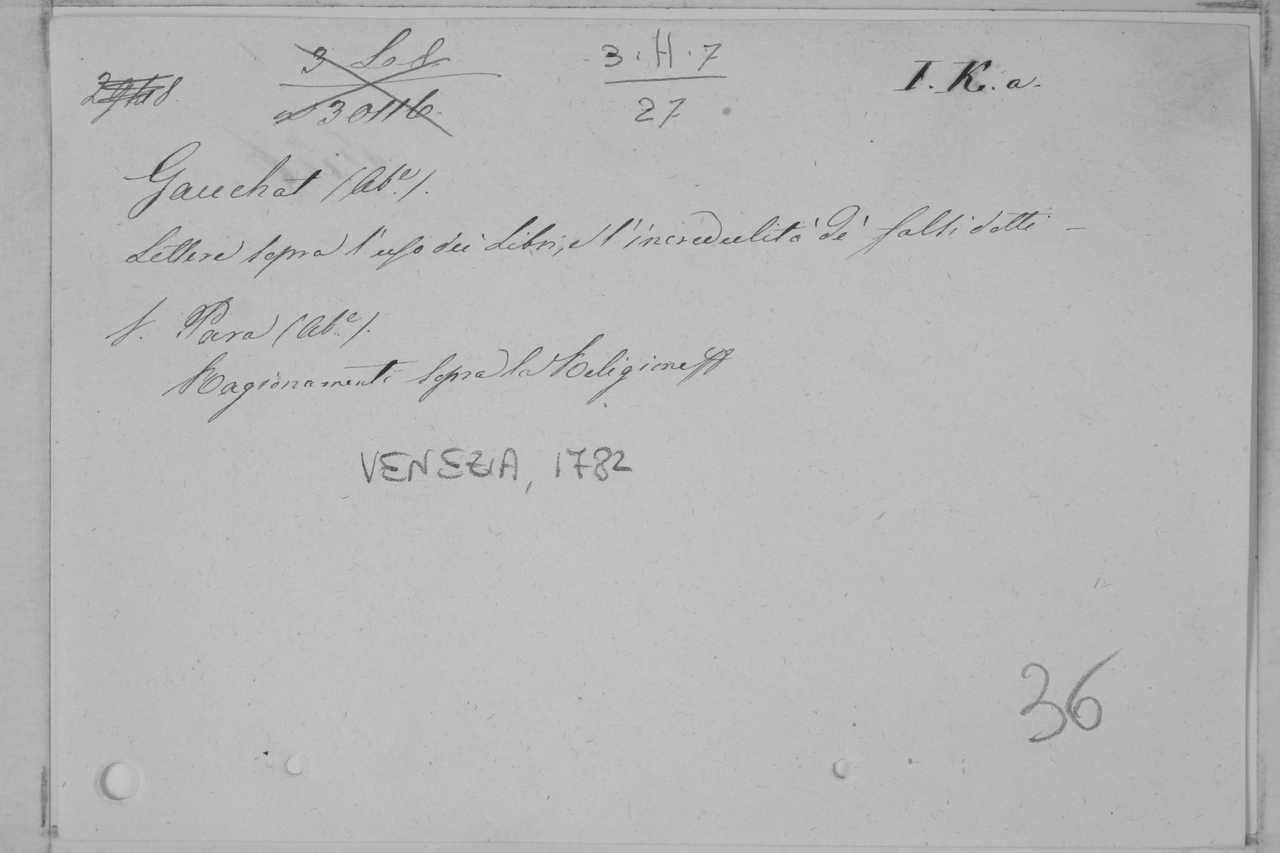 3 . H . 7
27
I. K. a.
Gauchat (Ab.e).
Lettere sopra l'uso dei Libri, e l'incredulità de' falsi dotti –
f. Para (Ab.e).
Ragionamenti sopra la Religione
VENEZIA, 1782
36